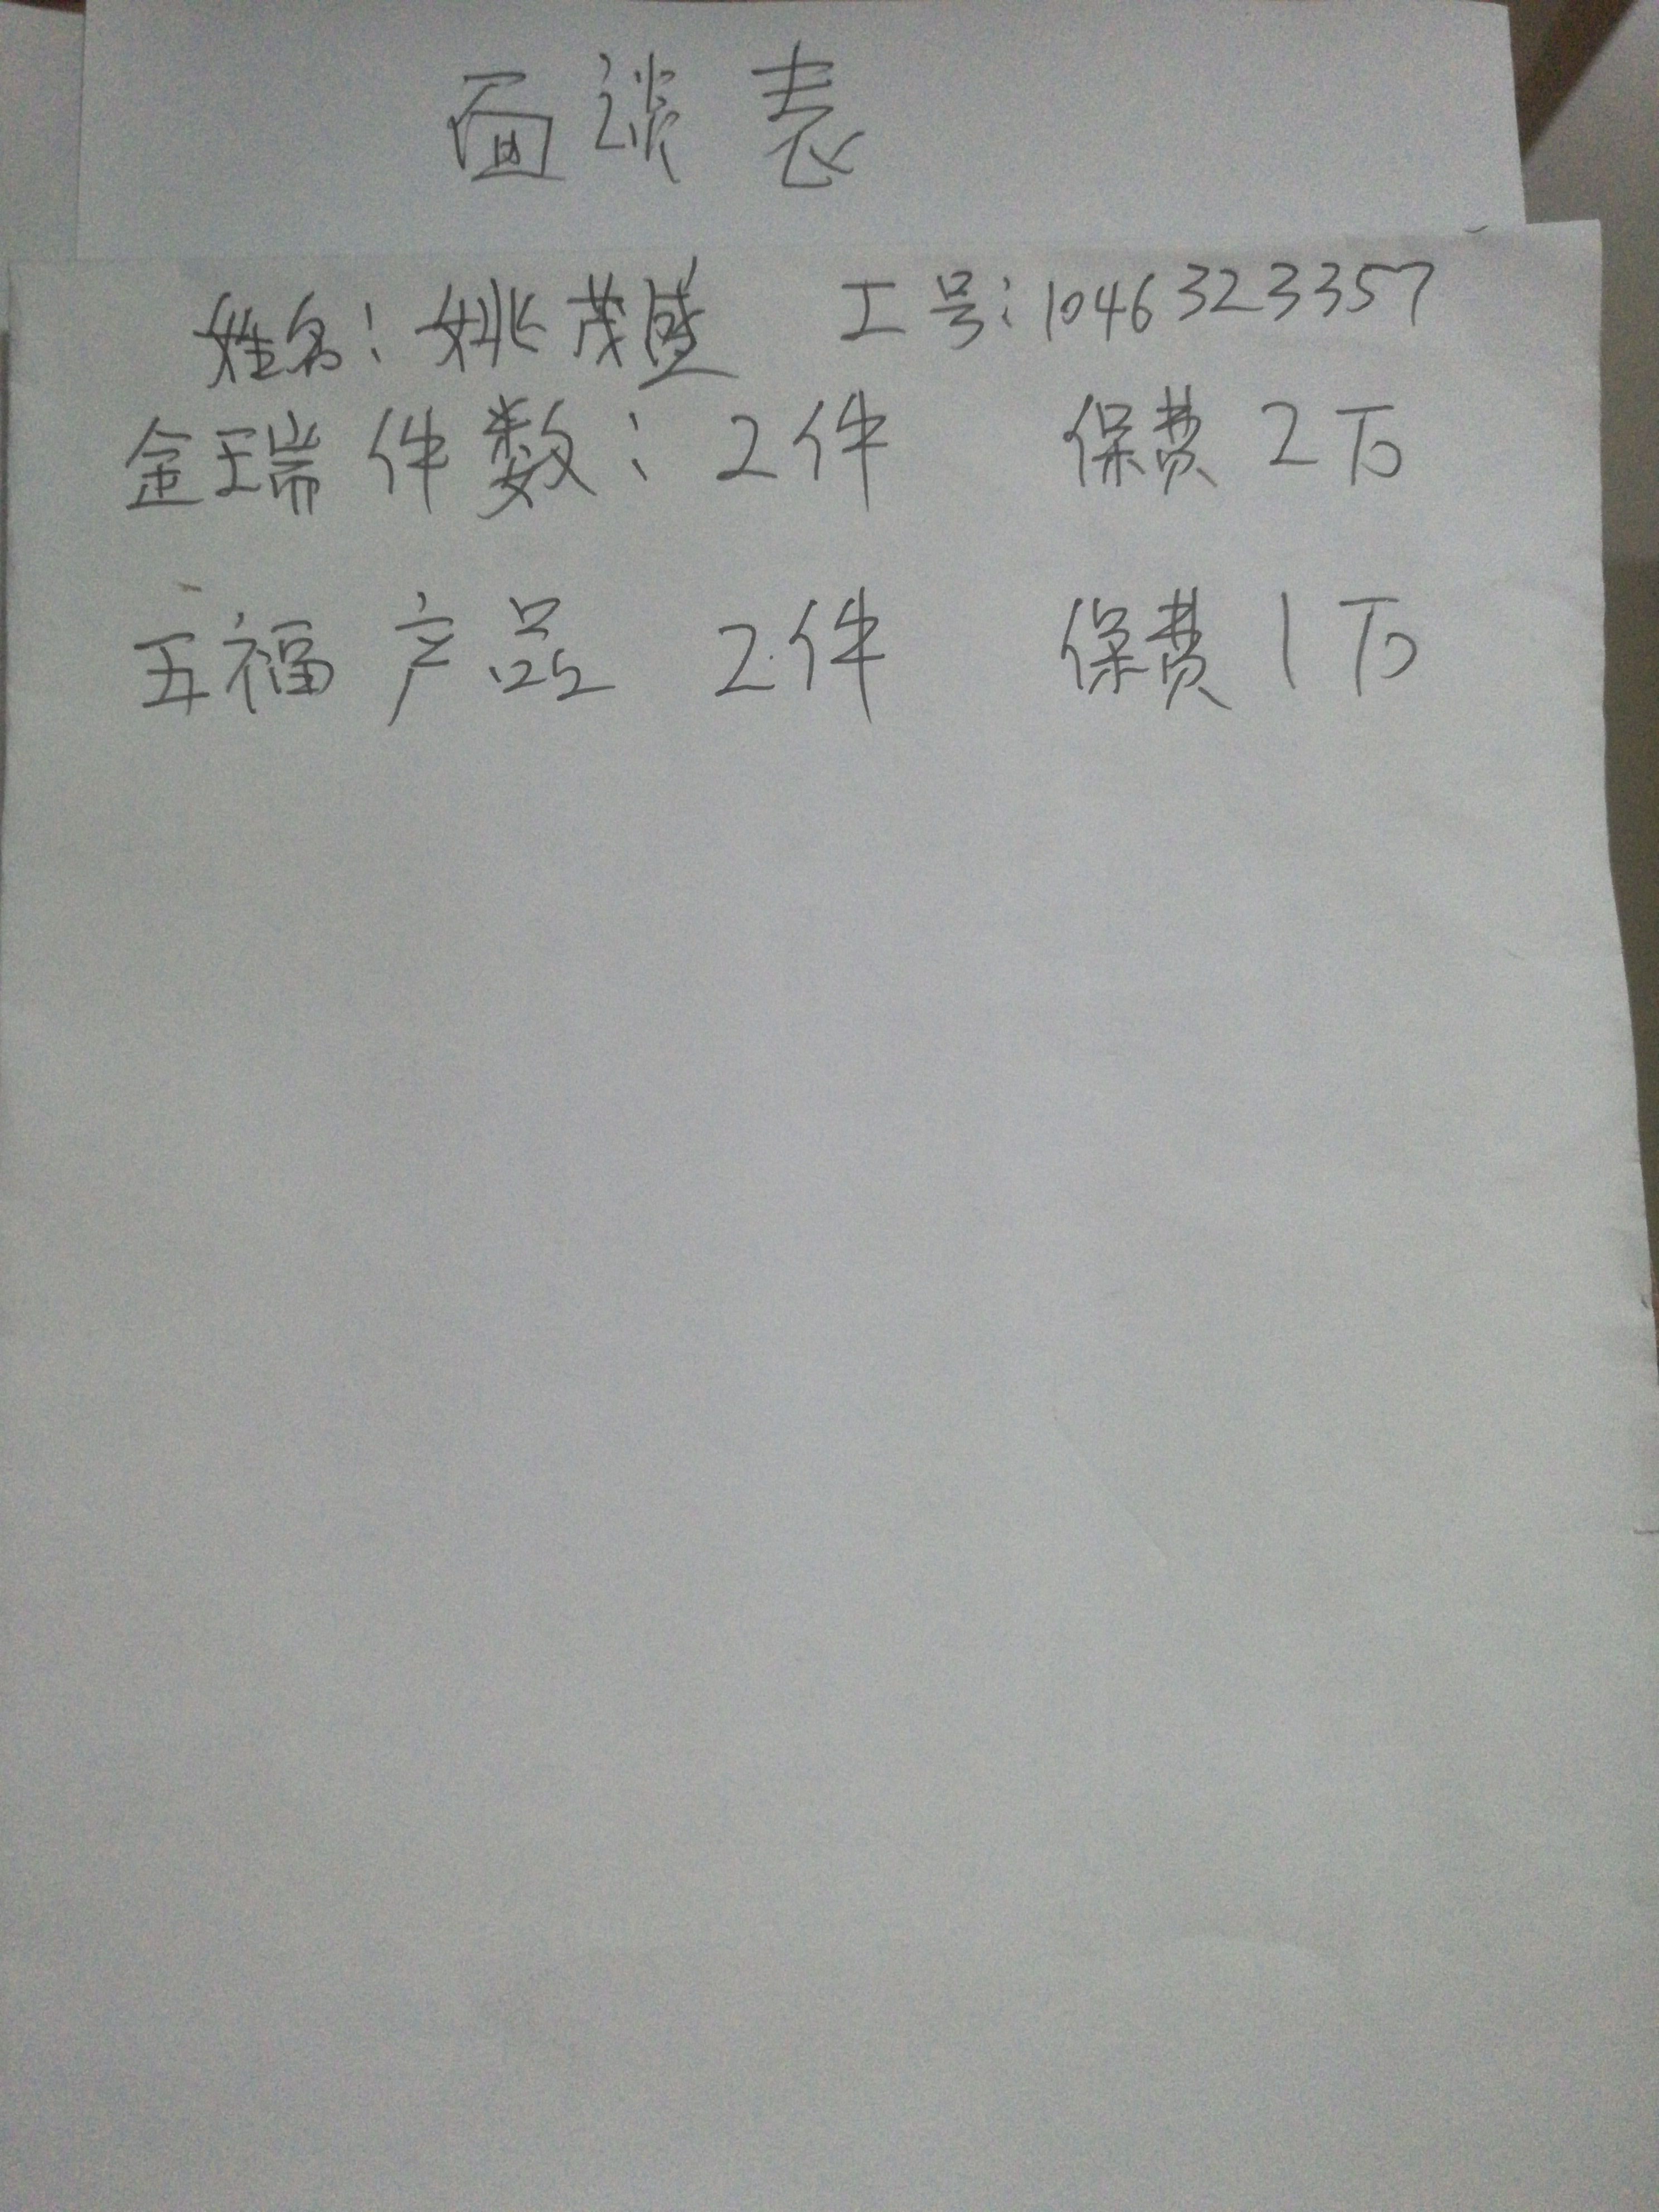 面谈表
姓名：姚茂盛 工号：1046323357
金瑞件数：2件 保费2万
五福产品 2件 保费1万